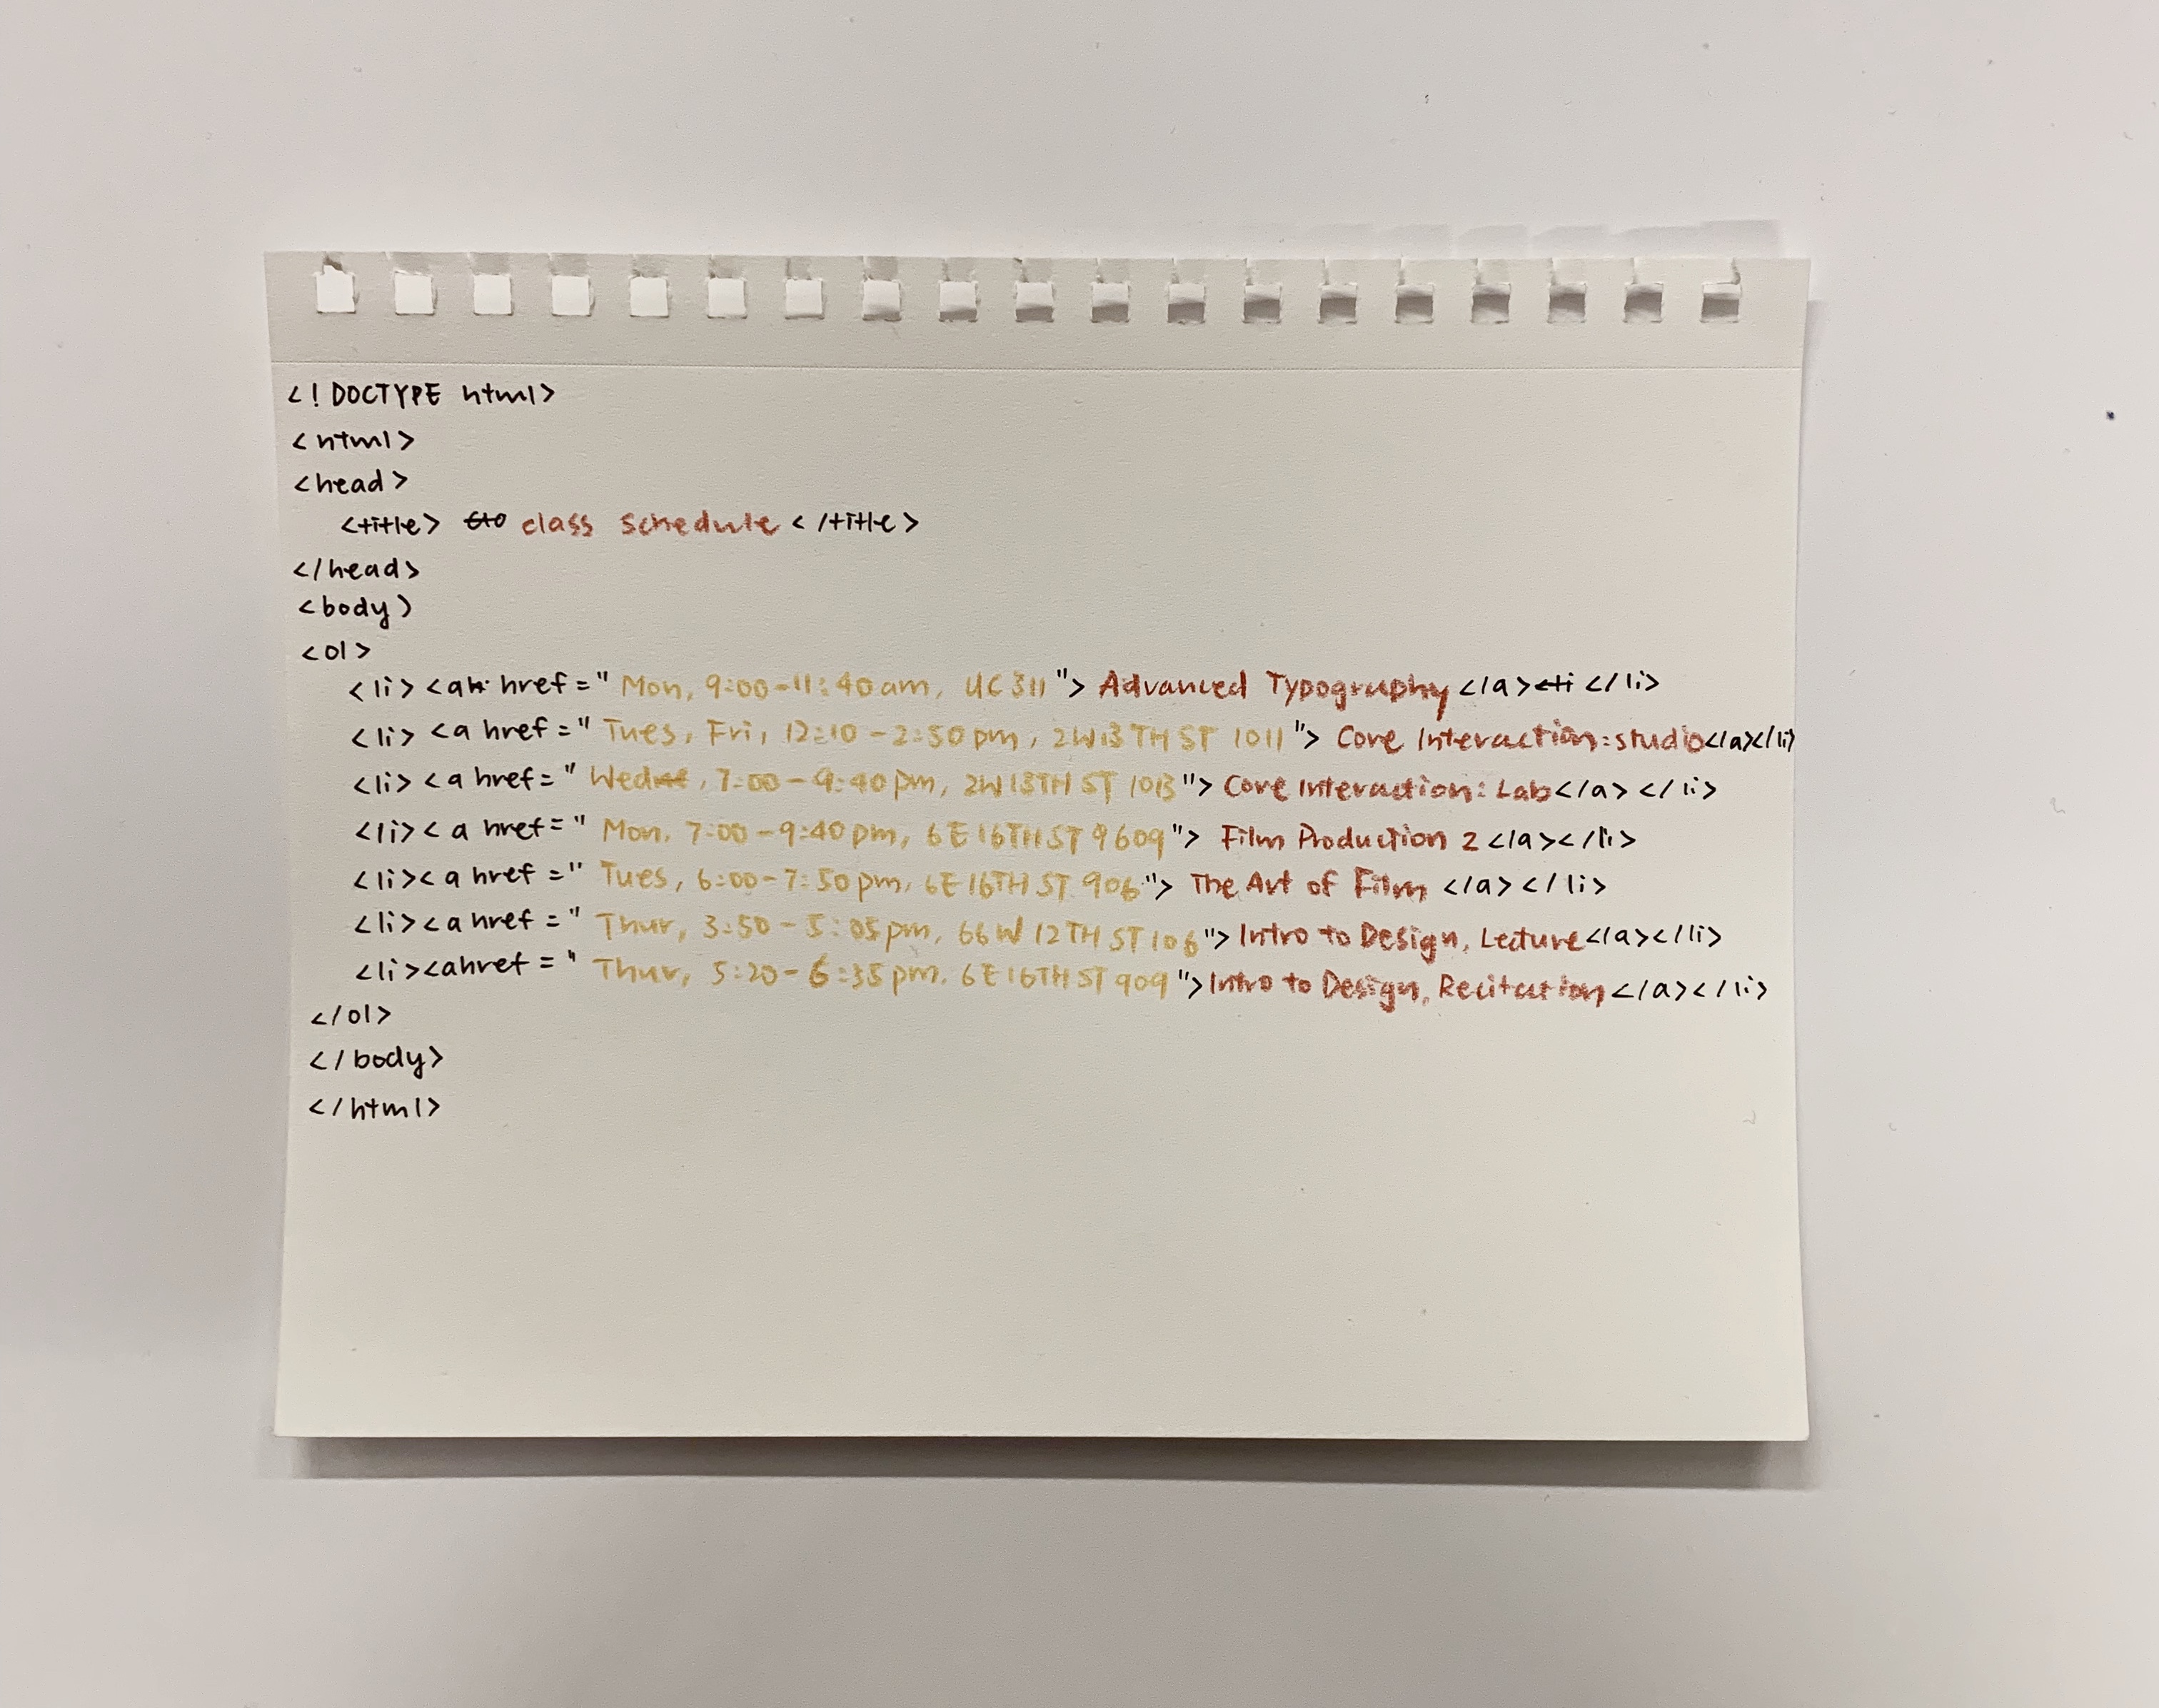 <!DOCTYPE html>
<html>
<head>
<title> class schedule </title>
</head>
<body>
<ol>
<li> <a href=" Mon, 9:00-11:40am, UC 311 "> Advanced Typography </a> </li>
<li> <a href=" Tues, Fri, 12:10-2:50pm, 2W13TH ST 1011 "> Core Interaction: studio</a></li>
<li> <a href=" Wed, 7:00-9:40pm, 2W13TH ST 1013 "> Core Interaction: Lab</a> </li>
<li> <a href=" Mon, 7:00-9:40pm, 6E16TH ST 9609 "> Film Production 2 </a></li>
<li><a href=" Tues, 6:00-7:50pm, 6E16TH ST 906 "> The Art of Film </a> </li>
<li><a href=" Thur, 3:50-5:05pm, 66W 12TH ST 106 "> Intro to Design, Lecture</a></li>
<li><ahref=" Thur, 5:20-6:35pm, 6E16TH ST 909 "> Intro to Design, Recitation </a></li>
</ol>
</body>
</html>